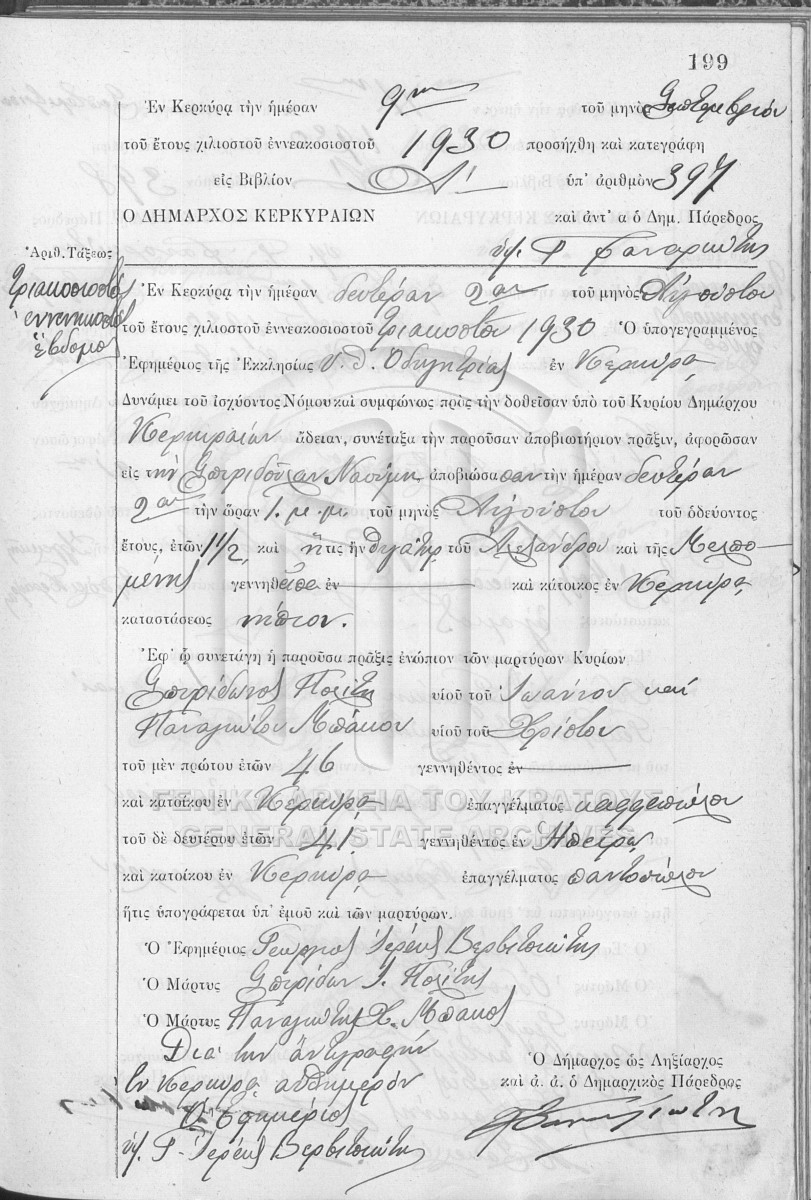 199
Ἐν Κερκύρᾳ τὴν ἡμέραν 9ην τοῦ μηνὸς Σεπτεμβρίου
τοῦ ἔτους χιλιοστοῦ ἐννεακοσιοστοῦ 1930 προσήχθη καὶ κατεγράφη
εἰς Βιβλίον Α' ὑπ' ἀριθμὸν 397
Ο ΔΗΜΑΡΧΟΣ ΚΕΡΚΥΡΑΙΩΝ καὶ ἀντ' α ὁ Δημ. Πάρεδρος
Ἀριθ. Τάξεως
Τριακοσιοστὸς
ἐννενηκοστὸς
ἕβδομος
Ἐν Κερκύρᾳ τὴν ἡμέραν δευτέραν 2αν τοῦ μηνὸς Αὐγούστου
τοῦ ἔτους χιλιοστοῦ ἐννεακοσιοστοῦ τριακοστοῦ 1930 Ὁ ὑπογεγραμμένος
Ἐφημέριος τῆς Ἐκκλησίας Υ. Θ. Ὁδηγητρίας ἐν Κερκύρᾳ
Δυνάμει τοῦ ἰσχύοντος Νόμου καὶ συμφώνως πρὸς τὴν δοθεῖσαν ὑπὸ τοῦ Κυρίου Δημάρχου
Κερκυραίων ἄδειαν, συνέταξα τὴν παροῦσαν ἀποβιωτήριον πρᾶξιν, ἀφορῶσαν
εἰς τὴν Σπυριδοῦλαν ἀποβιώσασαν τὴν ἡμέραν δευτέραν
2αν τὴν ὥραν 1. μ. μ. τοῦ μηνὸς Αὐγούστου τοῦ ὁδεύοντος
ἔτους, ἐτῶν 1 1/2, καὶ ἥτις ἦν θυγάτηρ τοῦ Ἀλεξάνδρου καὶ τῆς Μελπο-
μένης γεννηθεῖσα ἐν καὶ κάτοικος ἐν Κερκύρᾳ
καταστάσεως νήπιον.
Ἐφ' ᾧ συνετάγη ἡ παροῦσα πρᾶξις ἐνώπιον τῶν μαρτύρων Κυρίων
Σπυρίδωνος Πολίτη υἱοῦ τοῦ Ἰωάννου καί
Παναγιώτου Μπάκου υἱοῦ τοῦ Χρίστου
τοῦ μὲν πρώτου ἐτῶν 46 γεννηθέντος ἐν
καὶ κατοίκου ἐν Κερκύρᾳ ἐπαγγέλματος καφφεπώλου
ΓΕΝΙΚΑ ΑΡΧΕΙΑ ΤΟΥ ΚΡΑΤΟΥΣ
GENERAL STATE ARCHIVES
τοῦ δὲ δευτέρου ἐτῶν 41 γεννηθέντος ἐν Ἠπείρῳ
καὶ κατοίκου ἐν Κερκύρᾳ ἐπαγγέλματος παντοπώλου
ἥτις ὑπογράφεται ὑπ' ἐμοῦ καὶ τῶν μαρτύρων.
Ὁ Ἐφημέριος Γεώργιος Ἱερεὺς Βερβιτσιώτης
Ὁ Μάρτυς Σπυρίδων Ι. Πολίτης
Ὁ Μάρτυς Παναγιώτης Χ. Μπάκος
Διὰ τὴν ἀντιγραφὴν
Ἐν Κερκύρᾳ αὐθημερόν
Ὁ Ἐφημέριος
ὑπ. Γ. Ἱερεὺς Βερβιτσιώτης
Ὁ Δήμαρχος ὡς Ληξίαρχος
καὶ ἀ. ἀ. ὁ Δημαρχικὸς Πάρεδρος